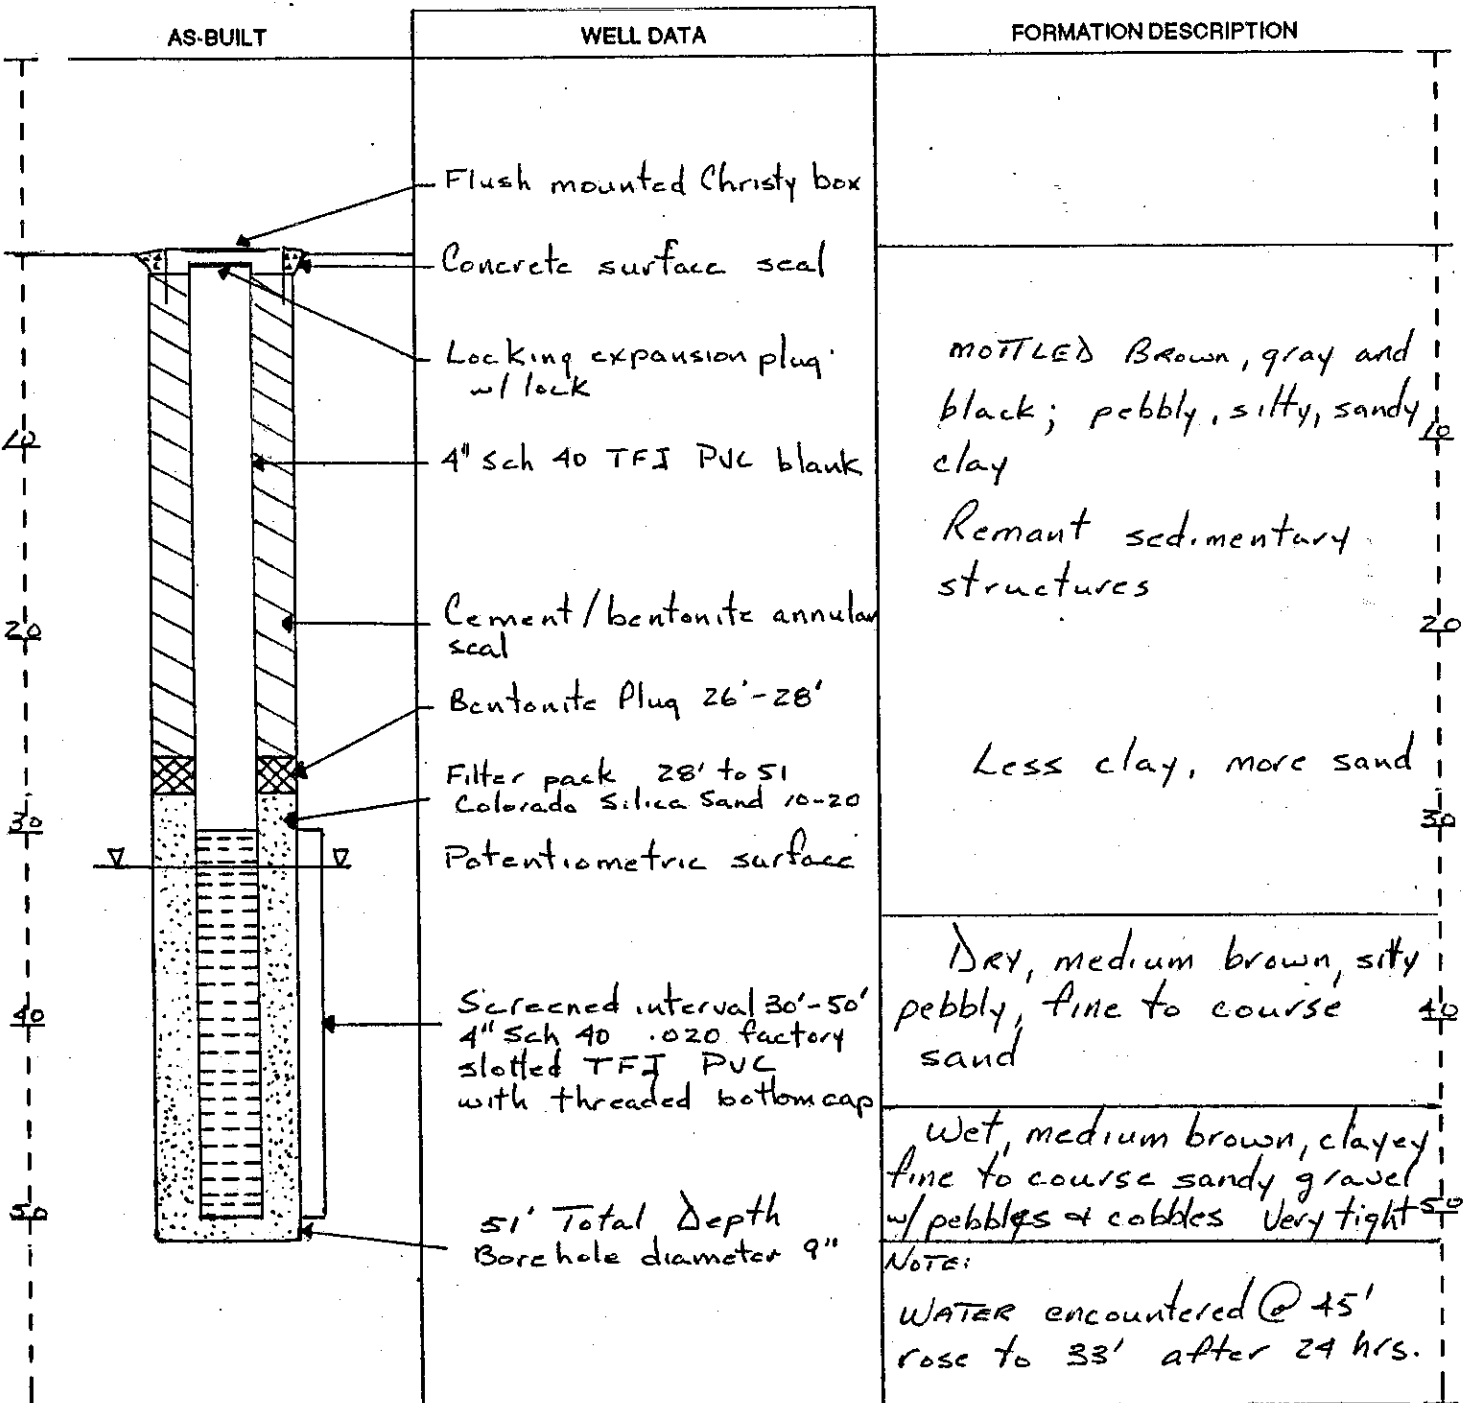 AS-BUILT
WELL DATA
FORMATION DESCRIPTION
Flush mounted Christy box
Concrete surface seal
Locking expansion plug
w/ lock
4" Sch 40 TFJ PVC blank
Cement/bentonite annular
seal
Bentonite Plug 26'-28'
Filter pack 28' to 51
Colorado Silica Sand 10-20
Potentiometric surface
Screened interval 30'-50'
4" Sch 40 .020 factory
slotted TFJ PVC
with threaded bottom cap
51' Total Depth
Borehole diameter 9"
MOTTLED Brown, gray and
black; pebbly, silty, sandy
clay
Remant sedimentary
structures
Less clay, more sand
DRY, medium brown, silty
pebbly, fine to course
sand
Wet, medium brown, clayey
fine to course sandy gravel
w/ pebbles & cobbles Very tight
NOTE:
WATER encountered @ 45'
rose to 33' after 24 hrs.
10
20
30
40
50
10
20
30
40
50